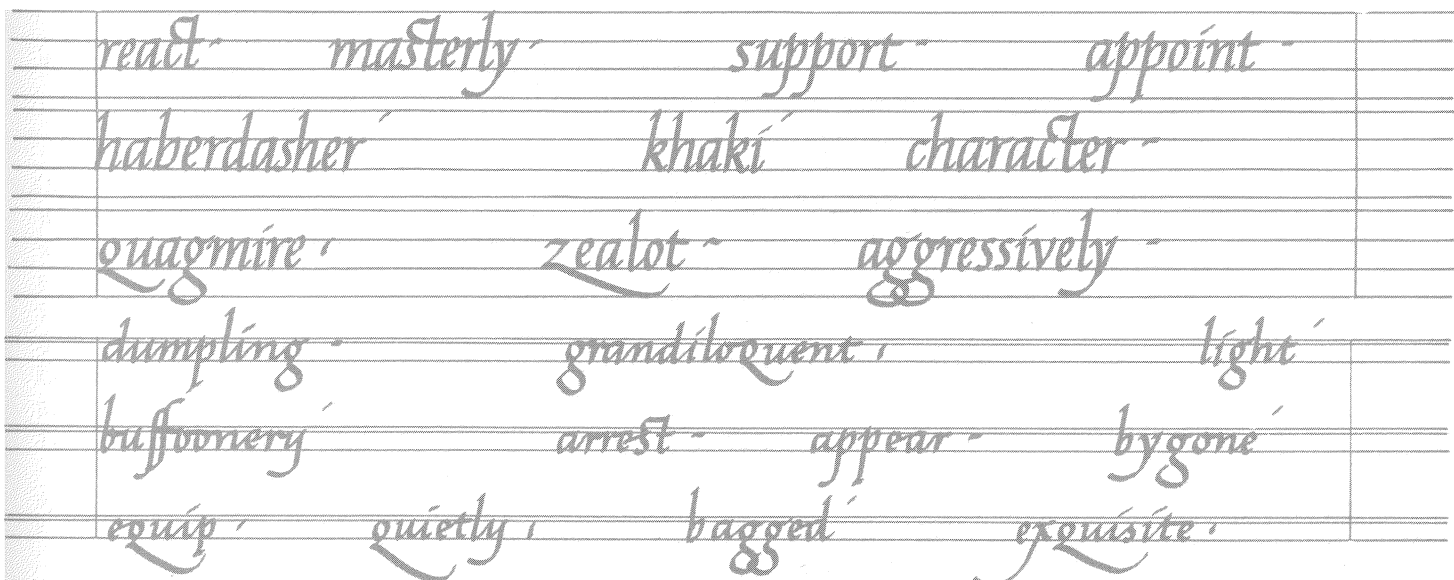 react - masterly - support - appoint -
haberdasher ' khaki ' character -
quagmire , zealot - aggressively -
dumpling - grandiloquent , light '
buffoonery ' arrest - appear - bygone '
equip , quietly , bagged ' exquisite ,